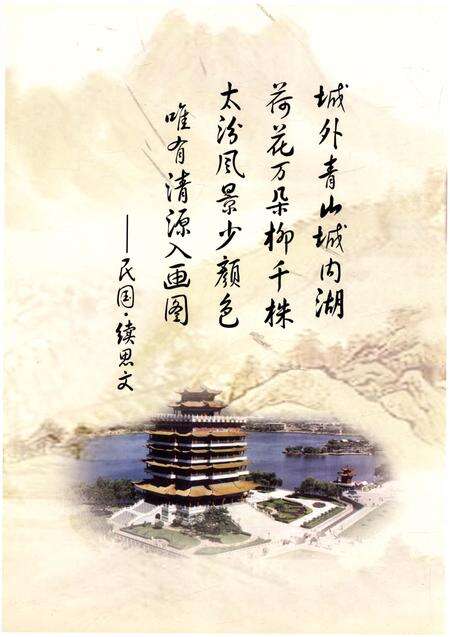 城外青山城内湖
荷花万朵柳千株
太汾风景少颜色
唯有清源入画图
——民国·续思文